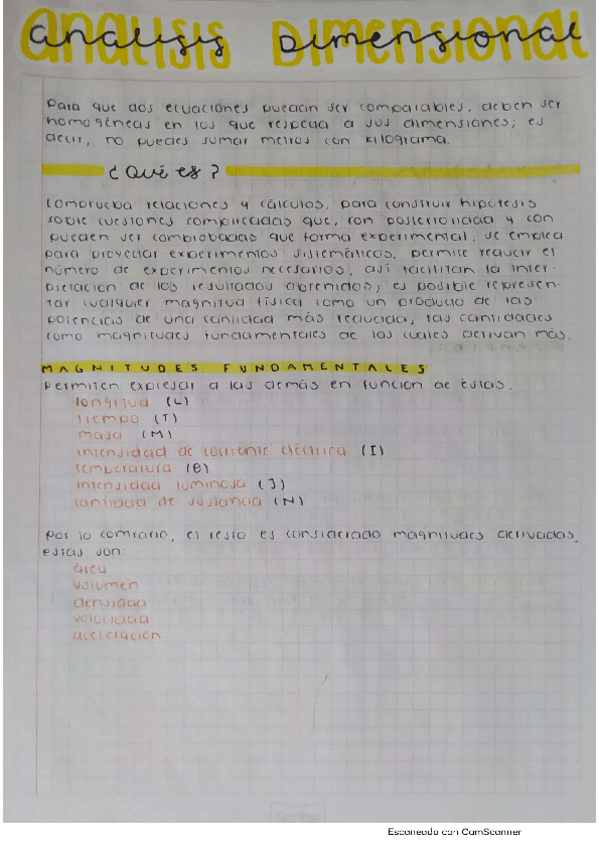 analisis Dimensional
Para que dos ecuaciones puedan ser comparables, deben ser
homogéneas en los que respecta a sus dimensiones; es
decir, no puedes sumar metros con kilograma.
¿Qué es?
Comprueba relaciones y cálculos, para construir hipótesis
sobre cuestiones complicadas que, con posterioridad y con
pueden ser comprobadas que forma experimental; se emplea
para proyectar experimentos sistemáticos, permite reducir el
número de experimentos necesarios, así facilitan la inter-
pretación de los resultados obtenidos; es posible represen-
tar cualquier magnitud física como un producto de las
potencias de una cantidad más reducida, tas cantidades
como magnitudes fundamentales de las cuales derivan más.
MAGNITUDES FUNDAMENTALES
Permiten expresar a las demás en función de éstas.
longitud (L)
tiempo (T)
masa (M)
intensidad de corriente eléctrica (I)
temperatura (θ)
intensidad luminosa (J)
cantidad de sustancia (N)
Por lo contrario, el resto es considerado magnitudes derivadas,
estas son:
área
volumen
densidad
velocidad
aceleración
Escaneado con CamScanner